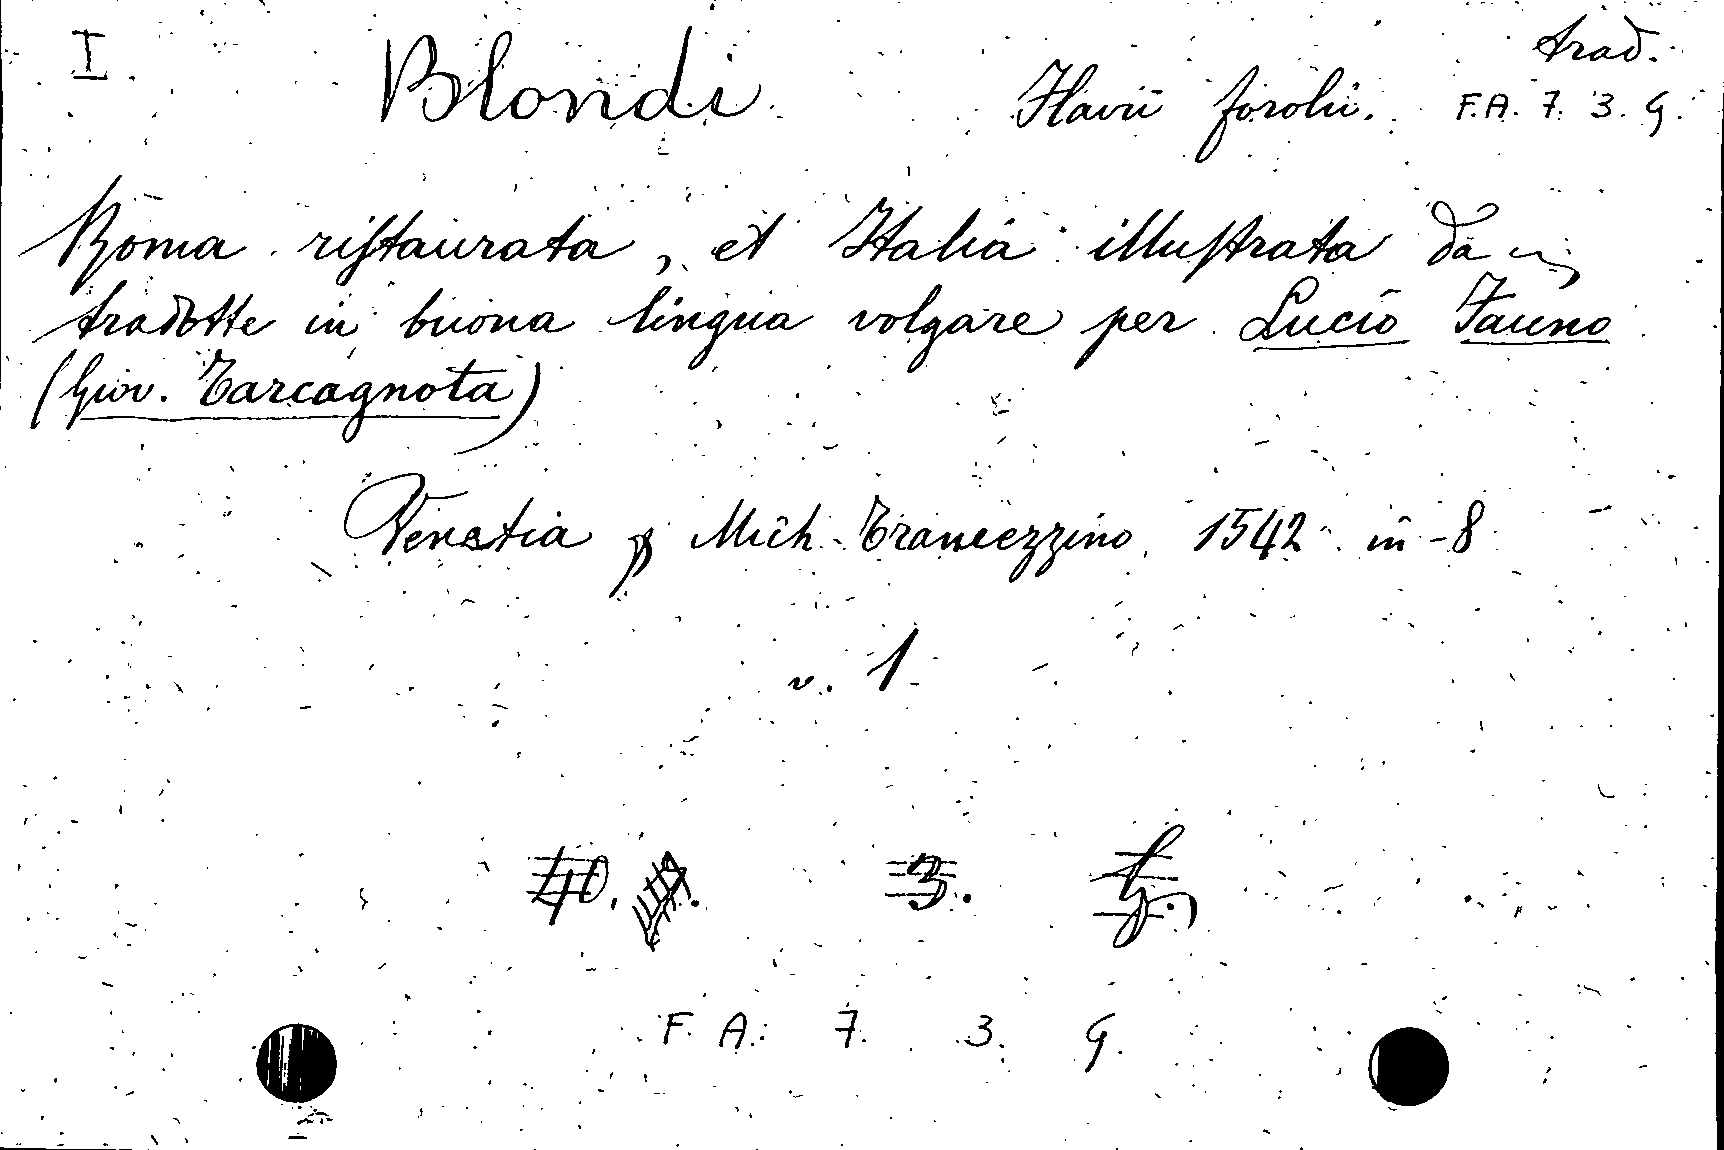 I. Blondi Flavii forolii. trad.
F.A. 7. 3. G.
Roma ristaurata, et Italia illustrata da
tradotte in buona lingua volgare per Lucio Fauno
(Giov. Tarcagnota)
Venetia p Mich. Tramezzino, 1542. in-8
v. 1
40. 3. G.
F. A. 7. 3. G.